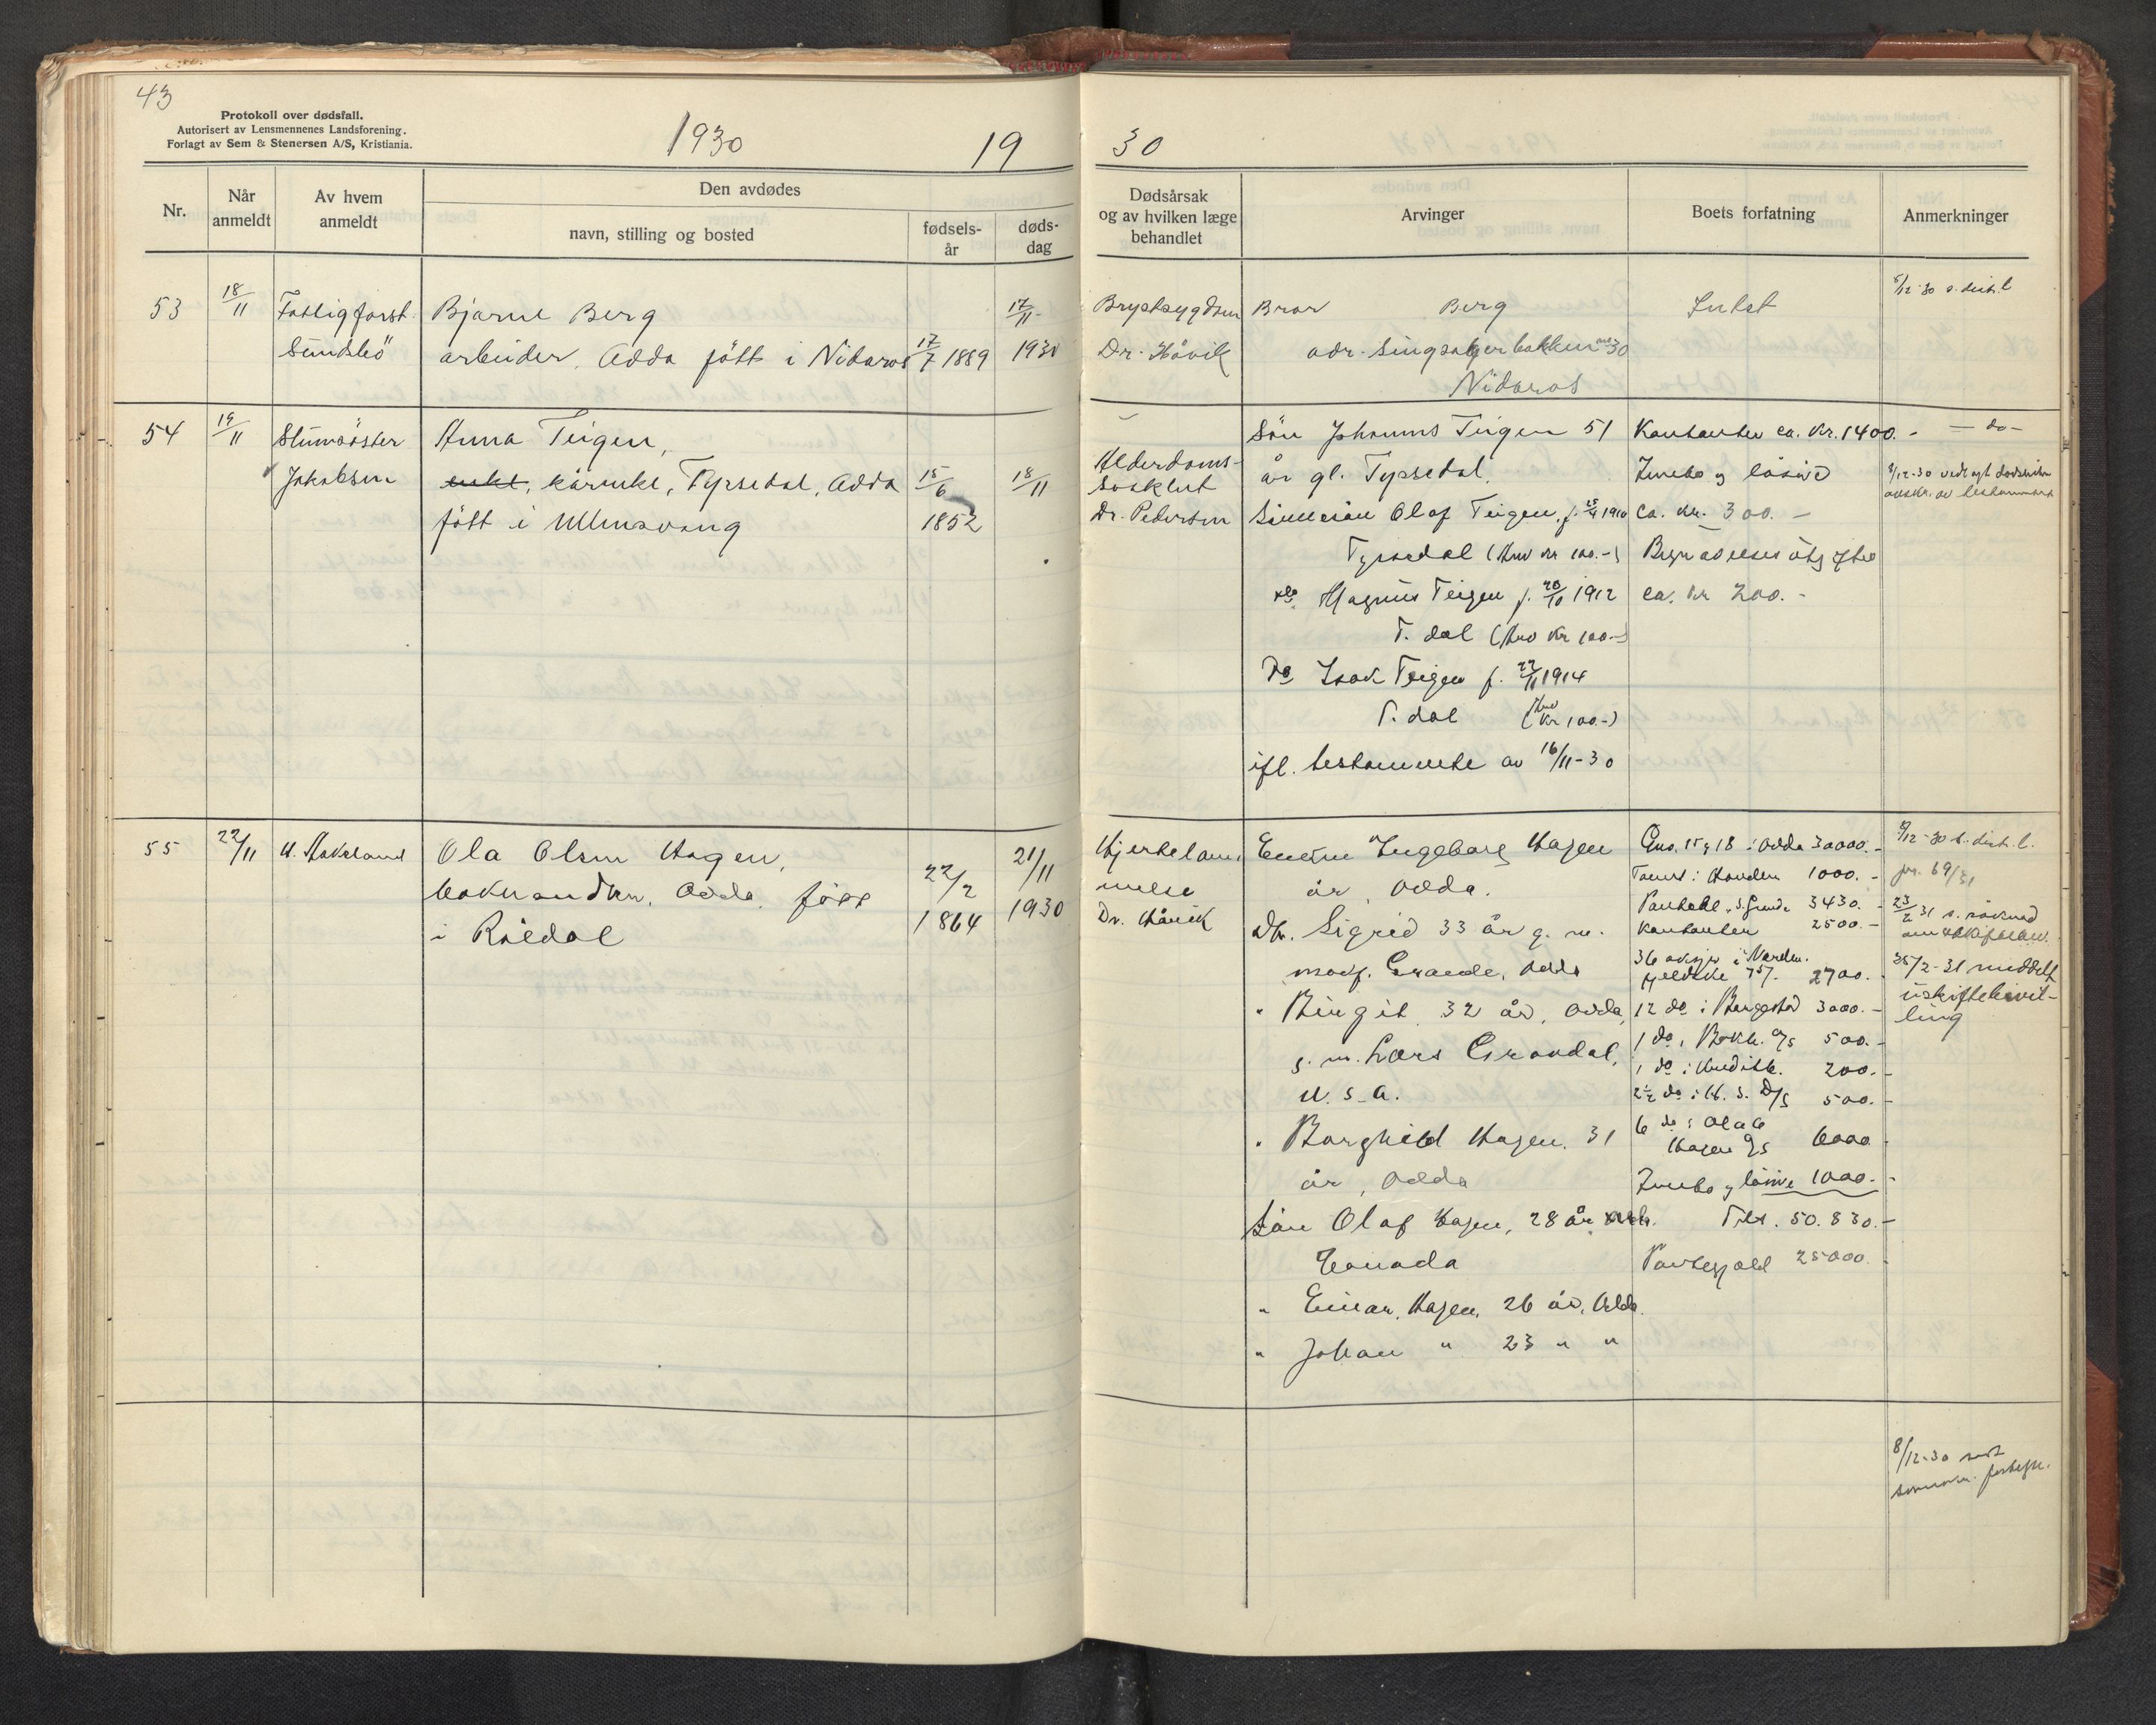 43
Protokoll over dødsfall.
Autorisert av Lensmennenes Landsforening.
Forlagt av Sem & Stenersen A/S, Kristiania.
1930
19
30
Nr.
Når
anmeldt
Av hvem
anmeldt
Den avdødes
navn, stilling og bosted
fødsels-
år
døds-
dag
Dødsårsak
og av hvilken læge
behandlet
Arvinger
Boets forfatning
Anmerkninger
53
18/11
Fattigforst.
Sundsbö
Bjarne Berg
arbeider, Odda født i Nidaros
17/7 1889
17/11
1930
Brystsygdom
Dr. Håvik
Bror Berg
adr. Singsakerbakken 30
Nidaros
Intet
5/12-30 s. dist.l
54
19/11
Jakobsen
Anna Teigen,
enke, kårenke, Tyssedal, Odda
født i Ullensvang
15/6
1852
18/11
Alderdoms-
Dr. Pedersen
Sön Johannes Teigen 51
år gl. Tyssedal.
Sönnesön Olaf Teigen, f. 1910
Tyssedal (Arv kr 100.-)
do. Magnus Teigen f. 20/10 1912
T. dal (Arv kr 100.-)
Do Isak Teigen f. 22/11 1914
T. dal (Arv kr 100.-)
ifl. testamente av 16/11-30
Kontanter ca. Kr. 1400.-
Innbo og lösöre
ca. kr. 300.-
Begravelses utgifter
ca. kr 200.-
- do -
55
22/11
Ola Olsen Hagen,
bokhandler, Odda, født
i Röldal
22/2
1864
21/11
1930
Hjertelam-
melse
Dr. Håvik
Enken Ingeborg Hagen
år, Odda.
Dtr. Sigrid 33 år g. m.
Grande, Odda
" Birgit 32 år, Odda,
g. m. Lars Grondal,
U. S. A.
" Borghild Hagen. 31
år, Odda
Sön Olaf Hagen, 28 år
Canada
" Einar Hagen, 26 år, Odda.
" Johan " 23 " "
Gno. 15 18 i Odda 30000.-
Tomt i 1000.-
3430.-
Kontanter 2500.-
36 aksjer i Norden.
2700.-
12 do i Borgestad 3000.-
1 do 500.-
1 do i Kreditb. 200.-
2½ do i H. S. D/S 500.-
6 do i Ola O
Hagen A/S 6000.-
Innbo og lösöre 1000.-
Tils. 50.830.-
Pantegjeld 25000.-
12-30 s. dist. l.
jnr. 69/31
23/2 31 s. söknad
25/2-31 meddelt
uskiftebevil-
ling
8/12-30 sendt